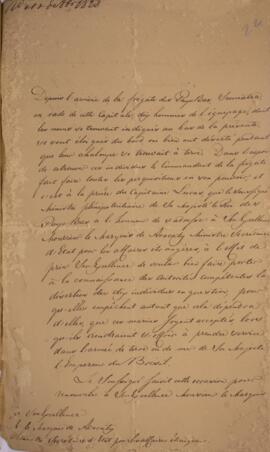 Depuis l'arrivée de la frégate des Pays-Bas Sumatra,
en rade de cette Capitale, dix hommes de l'équipage, dont
les noms se trouvent indiqués au bas de la présente,
se sont du bord ou bien ont déserté pendant
que leur chaloupe se trouvait à terre. Dans l'espoir
de ces individus le Commandant de la frégate
fait faire toutes les perquisitions en son pouvoir, et
c'est à la prière du Capitaine que le Soussigné
Ministre Plénipotentiaire de Sa Majesté le Roi des
Pays-Bas a l'honneur de s'adresser à Son Excellence
Monsieur le Marquis de Aracaty Ministre Secrétaire
d'Etat pour les affaires étrangères, à l'effet de
prier Son Excellence de vouloir bien faire porter
à la connaissance des autorités compétentes la
désertion des dix individus en question, pour
qu'elles empêchent autant que cela dépendra
d'elles, que ces marins soyent acceptés lors
qu'ils viendraient s'offrir à prendre service
dans l'armée de terre ou de mer de Sa Majesté
l'Empereur du Brésil.
Le Soussigné saisit cette occasion pour
renouveler à Son Excellence Monsieur le Marquis
Son Excellence
le Marquis de Aracaty
Secrétaire d'Etat pour les affaires étrangères.